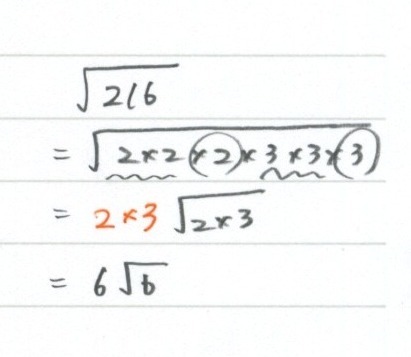 √216
= √2×2×2×3×3×3
= 2×3√2×3
= 6√6